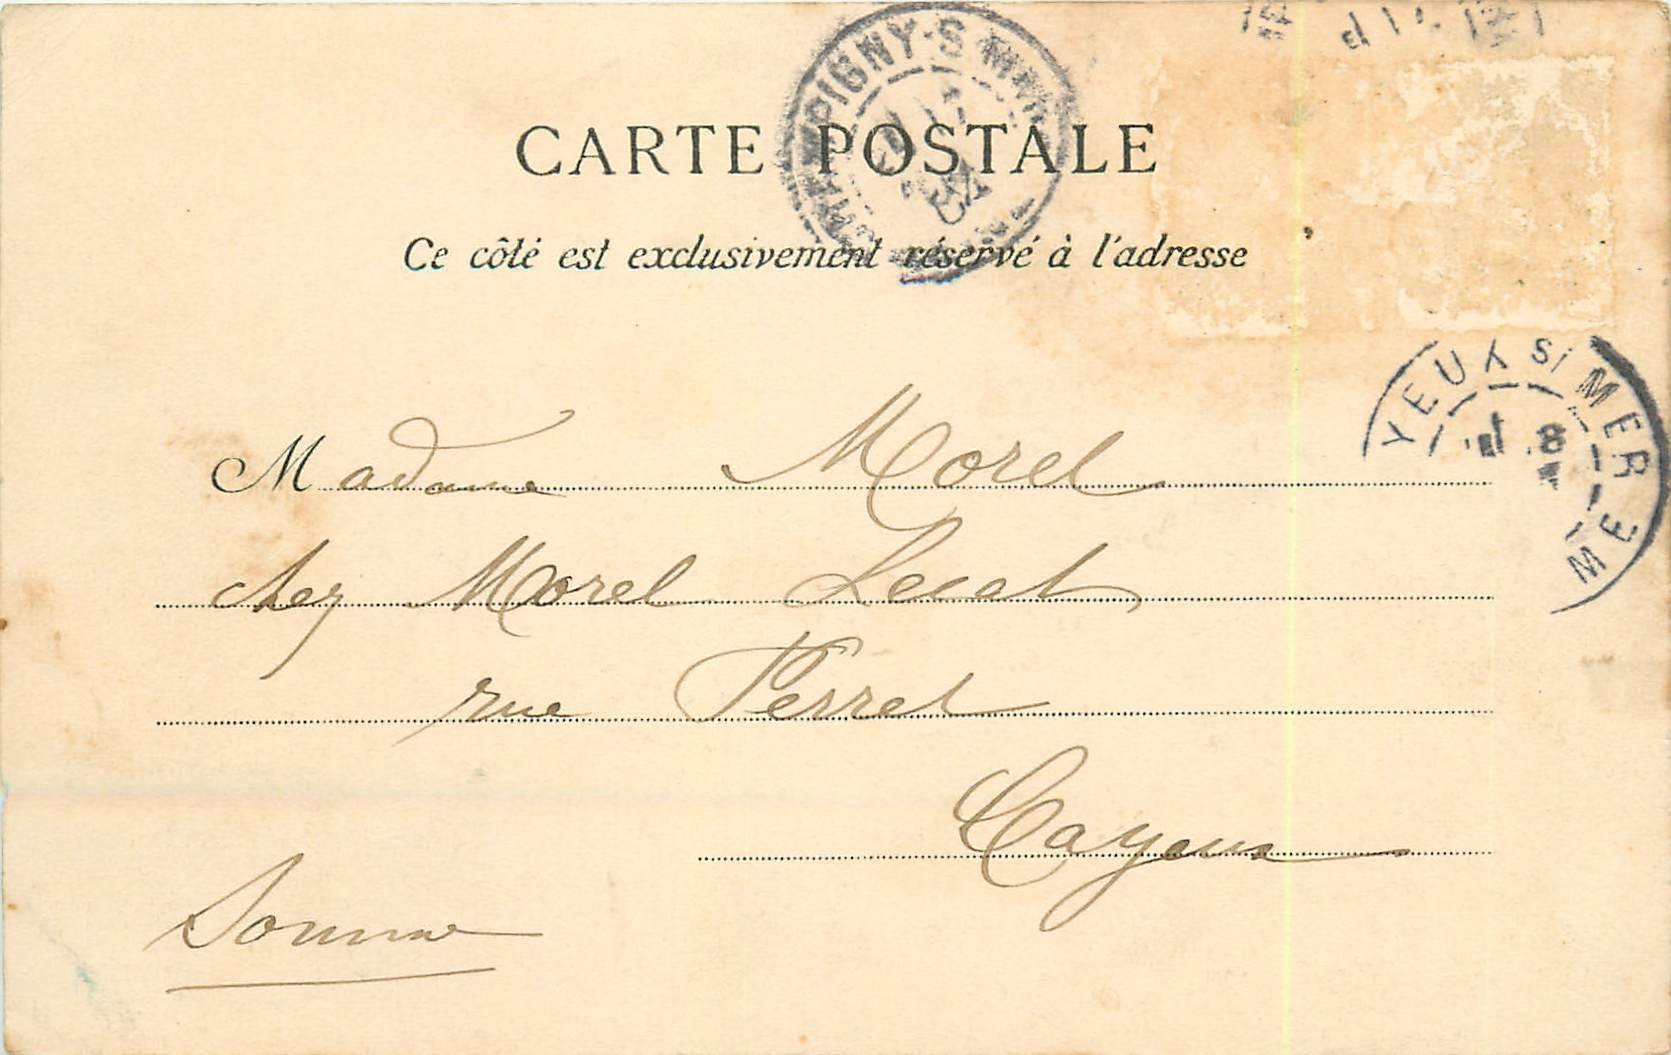 CARTE POSTALE
Ce côté est exclusivement réservé à l'adresse
PIGNY-S-MAR
YEUX S/ MER
Madame Morel
chez Morel Lecat
rue Perret
Cayeux
Somme